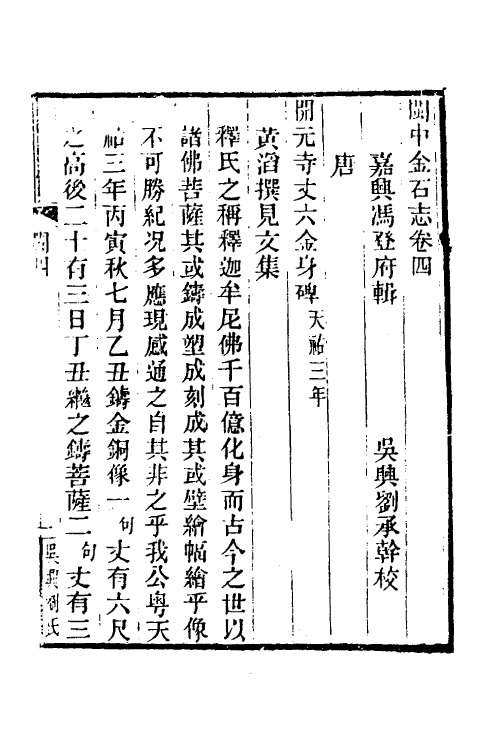 閩中金石志卷四
嘉興馮登府輯　吳興劉承幹校
唐
開元寺丈六金身碑 天祐三年
黃滔撰見文集
釋氏之稱釋迦牟尼佛千百億化身而古今之世以
諸佛菩薩其或鑄成塑成刻成其或壁繪幅繪乎像
不可勝紀况多應現感通之自其非之乎我公粵天
祐三年丙寅秋七月乙丑鑄金銅像一句丈有六尺
之高後二十有三日丁丑繼之鑄菩薩二句丈有三
閩四
一
吳興劉氏